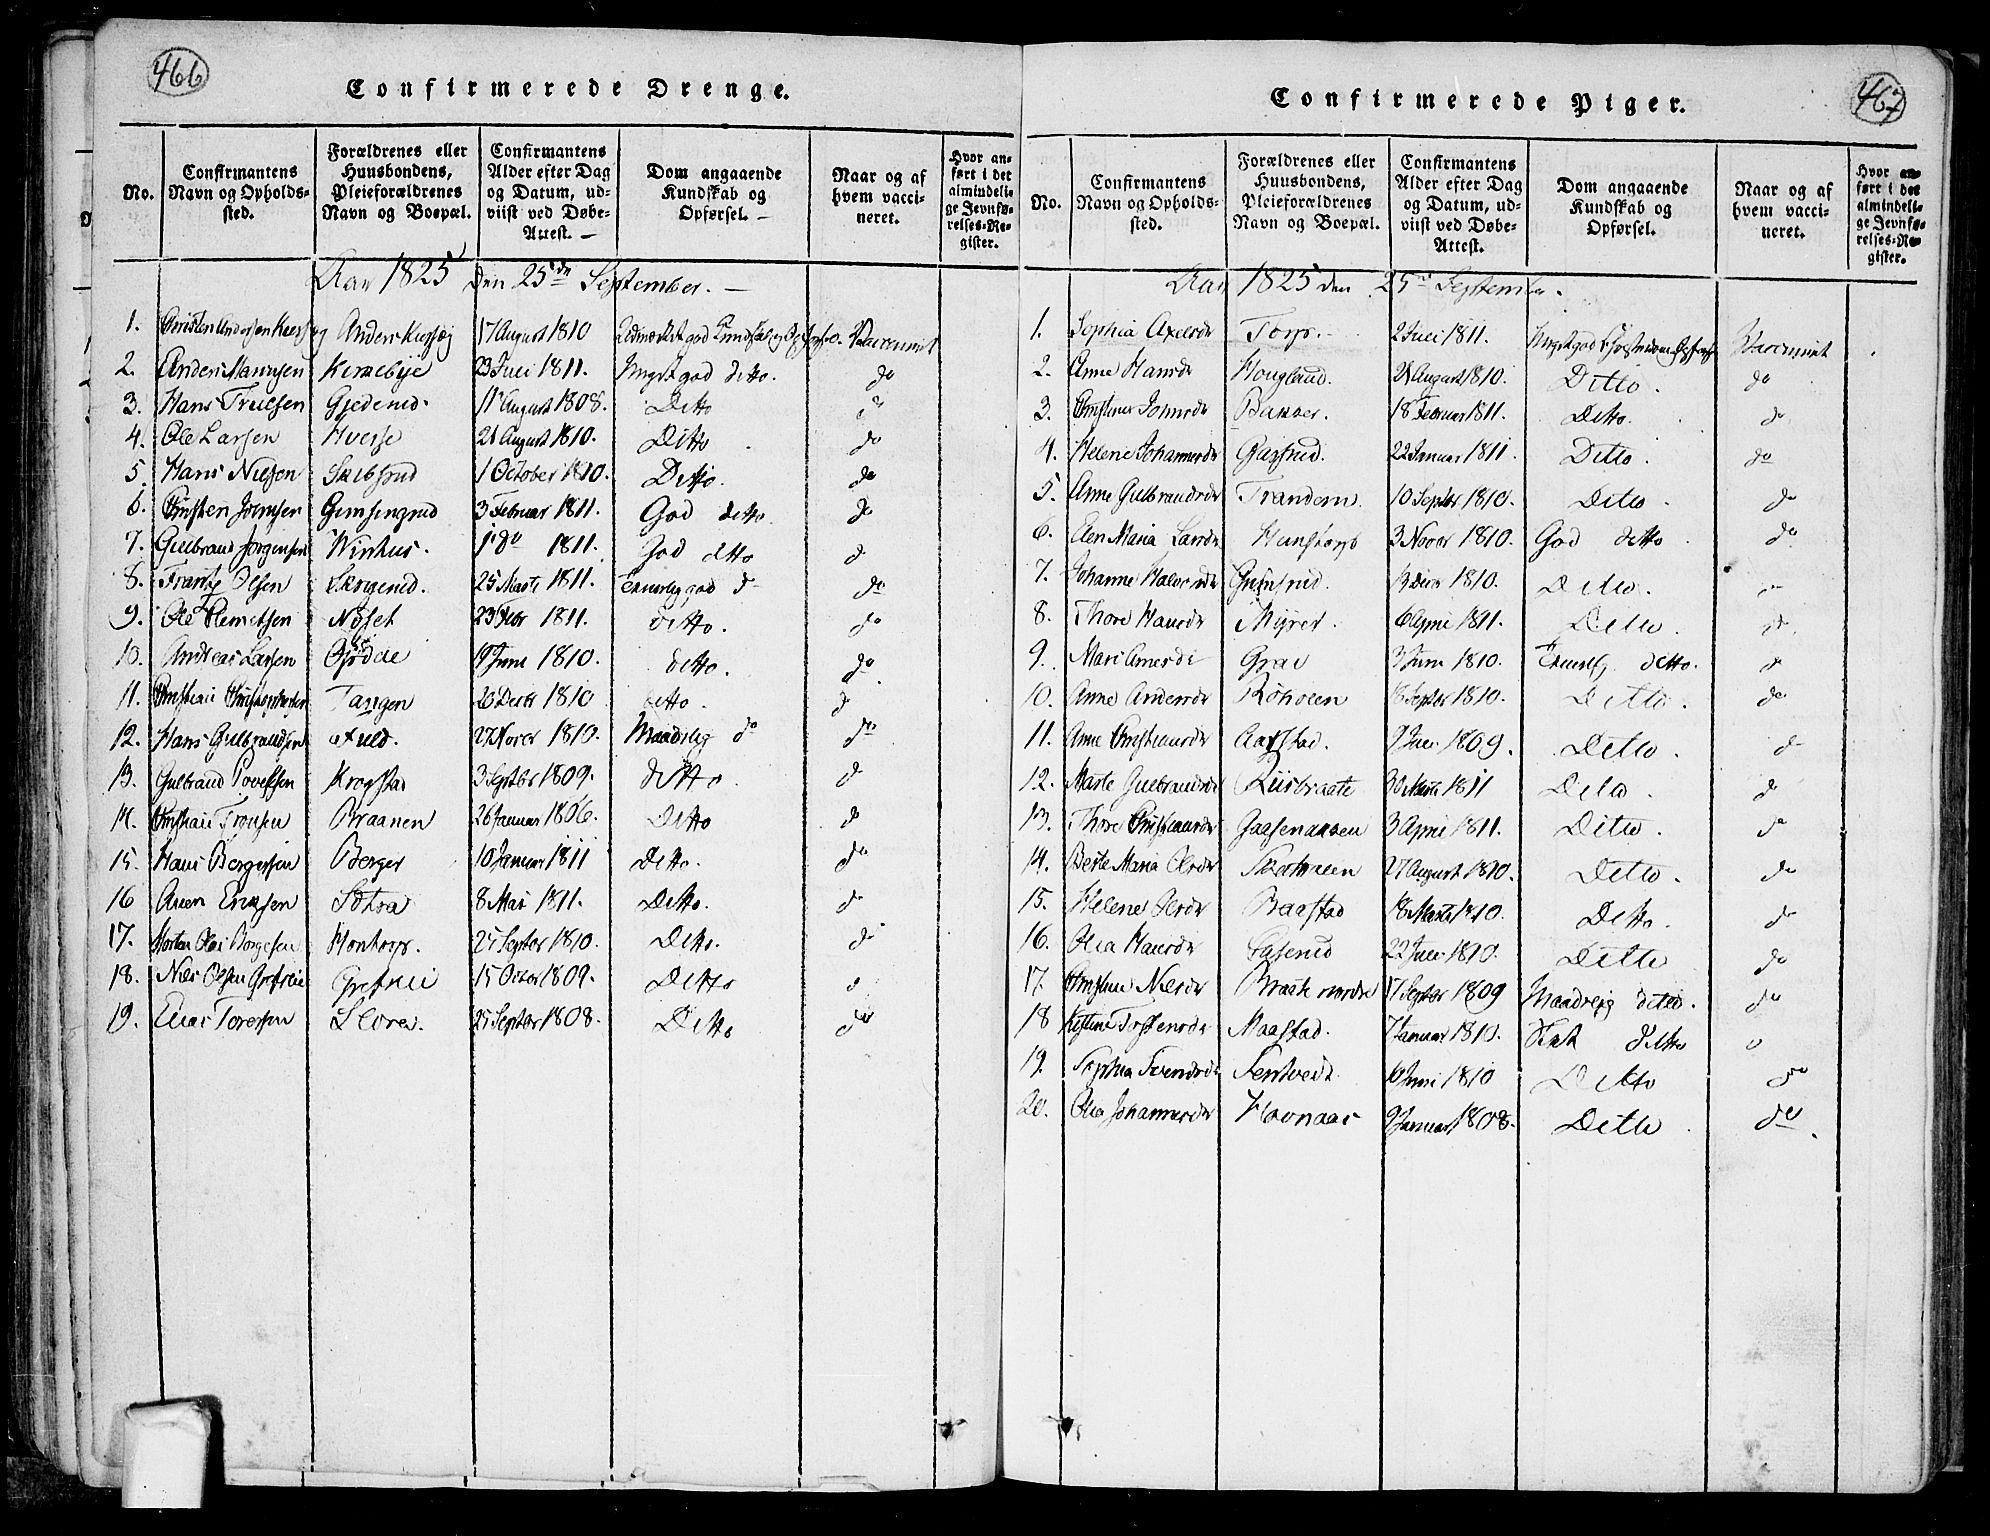 466
Confirmerede Drenge.
No.
Confirmantens Navn og Opholds-sted.
Forældrenes eller Huusbondens, Pleieforældrenes Navn og Boepæl.
Confirmantens Alder efter Dag og Datum, ud-viist ved Døbe-Attest.
Dom angaaende Kundskab og Opførsel.
Naar og af hvem vacci-neret.
Hvor an-ført i det almindeli-ge Jevnfø-relses-Re-gister.
Aar 1825 den 25de September.
1. Christen Andersen Anders 17 August 1810 Vaccineret
2. Anders Hansen 23 Juli 1811. Meget god ditto. do
3. Hans Truelsen Gjederud 11 August 1808. Ditto do
4. Ole Larsen 21 August 1810. Ditto do
5. Hans Nielsen Skibsrud 1 October 1810. Ditto. do
6. Christen Joensen Gimsingrud 3 Februar 1811. God ditto. do
7. Gulbrand Jørgensen Winhus. 1 do 1811. God ditto d
8. Frantz Olsen 25 Marts 1811. Temelig god d do
9. Ole Clemetsen Nøset 23 Febr 1811. ditto. do
10. Andreas Larsen 19 Juni 1810. ditto. do
11. Christian Christophersen Tangen 26 Decbr 1810 ditto. d
12. Hans Gulbrandsen Fuld. 27 Novbr 1810. Maadelig do do
13. Gulbrand Povelsen Krogstad 3 Septbr 1809. ditto d
14. Christian Tronsen Braanen 26 Januar 1806. Ditto do
15. Hans Bergersen Berger 10 Januar 1811 Ditto. do
16 Aren Ericksen Sotra 8 Mai 1811. Ditto. do
17. Morten Olai Borgesen Hontorp. 25 Septbr 1810. Ditto. do
18. Niels Olsen Grefslie 15 Octbr 1809. Ditto d
19. Elias Toresen 25 Septbr 1808. Ditto do
467
Confirmerede Piger.
No.
Confirmantens Navn og Opholds-sted.
Forældrenes eller Huusbondens, Pleieforældrenes Navn og Boepæl.
Confirmantens Alder efter Dag og Datum, ud-viist ved Døbe-Attest.
Dom angaaende Kundskab og Opførsel.
Naar og af hvem vacci-neret.
Hvor an-ført i det almindeli-ge Jevnfø-relses-Re-gister.
Aar 1825 den 25de September.
1. Sophia Axelsdr Torp. 2 Juli 1811. Meget god Vaccineret
2. Anne Hansdr Hougland. 21 August 1810. Ditto. do
3. Johnsdr Bakker. 18 Februar 1811. Ditto. do
4. Helene Johannesdr 22 Januar 1811. Ditto. do
5. Anne Gulbrandsdr Trandem. 10 Septbr 1810. Ditto. do
6. Aen Maria Larsdr Hunstorp 3 Novbr 1810. God ditto. do
7. Johanne Halvorsdr Grimsrud. 13 Decbr 1810. Ditto.
8. Thore Hansdr Myrer. 6 April 1811. Ditto. do
9. Mari Arnesdr Grav 3 Juni 1810. Temelig ditto. d
10. Anne Andersdr 18 Septbr 1810. Ditto. do
11. Anne Christiansdr Aarstad. 9 Juli 1809. Ditto. d
12. Marte Gulbrandsdr Riisbraate 30 Marts 1811 Ditto. do
13. Thore Christiansdr 3 April 1811. Ditto. do
14. Berte Maria Olsdr 27 August 1810. Ditto. do
15. Helene Olsdr Baastad 18 Marts 1810. Ditto. d
16. Olia Hansdr 22 Juli 1810. Ditto do
17. Nielsdr Braate nordre 17 Septbr 1809 Maadelig ditto. do
18 Kistine Tostensdr Maastad. 7 Januar 1810. Slet ditto
19. Sophia Svendsdr Tentveit. 6 Juni 1810 Ditto do
20. Olia Johannesdr Hovnaas 9 Januar 1808. Ditto. do